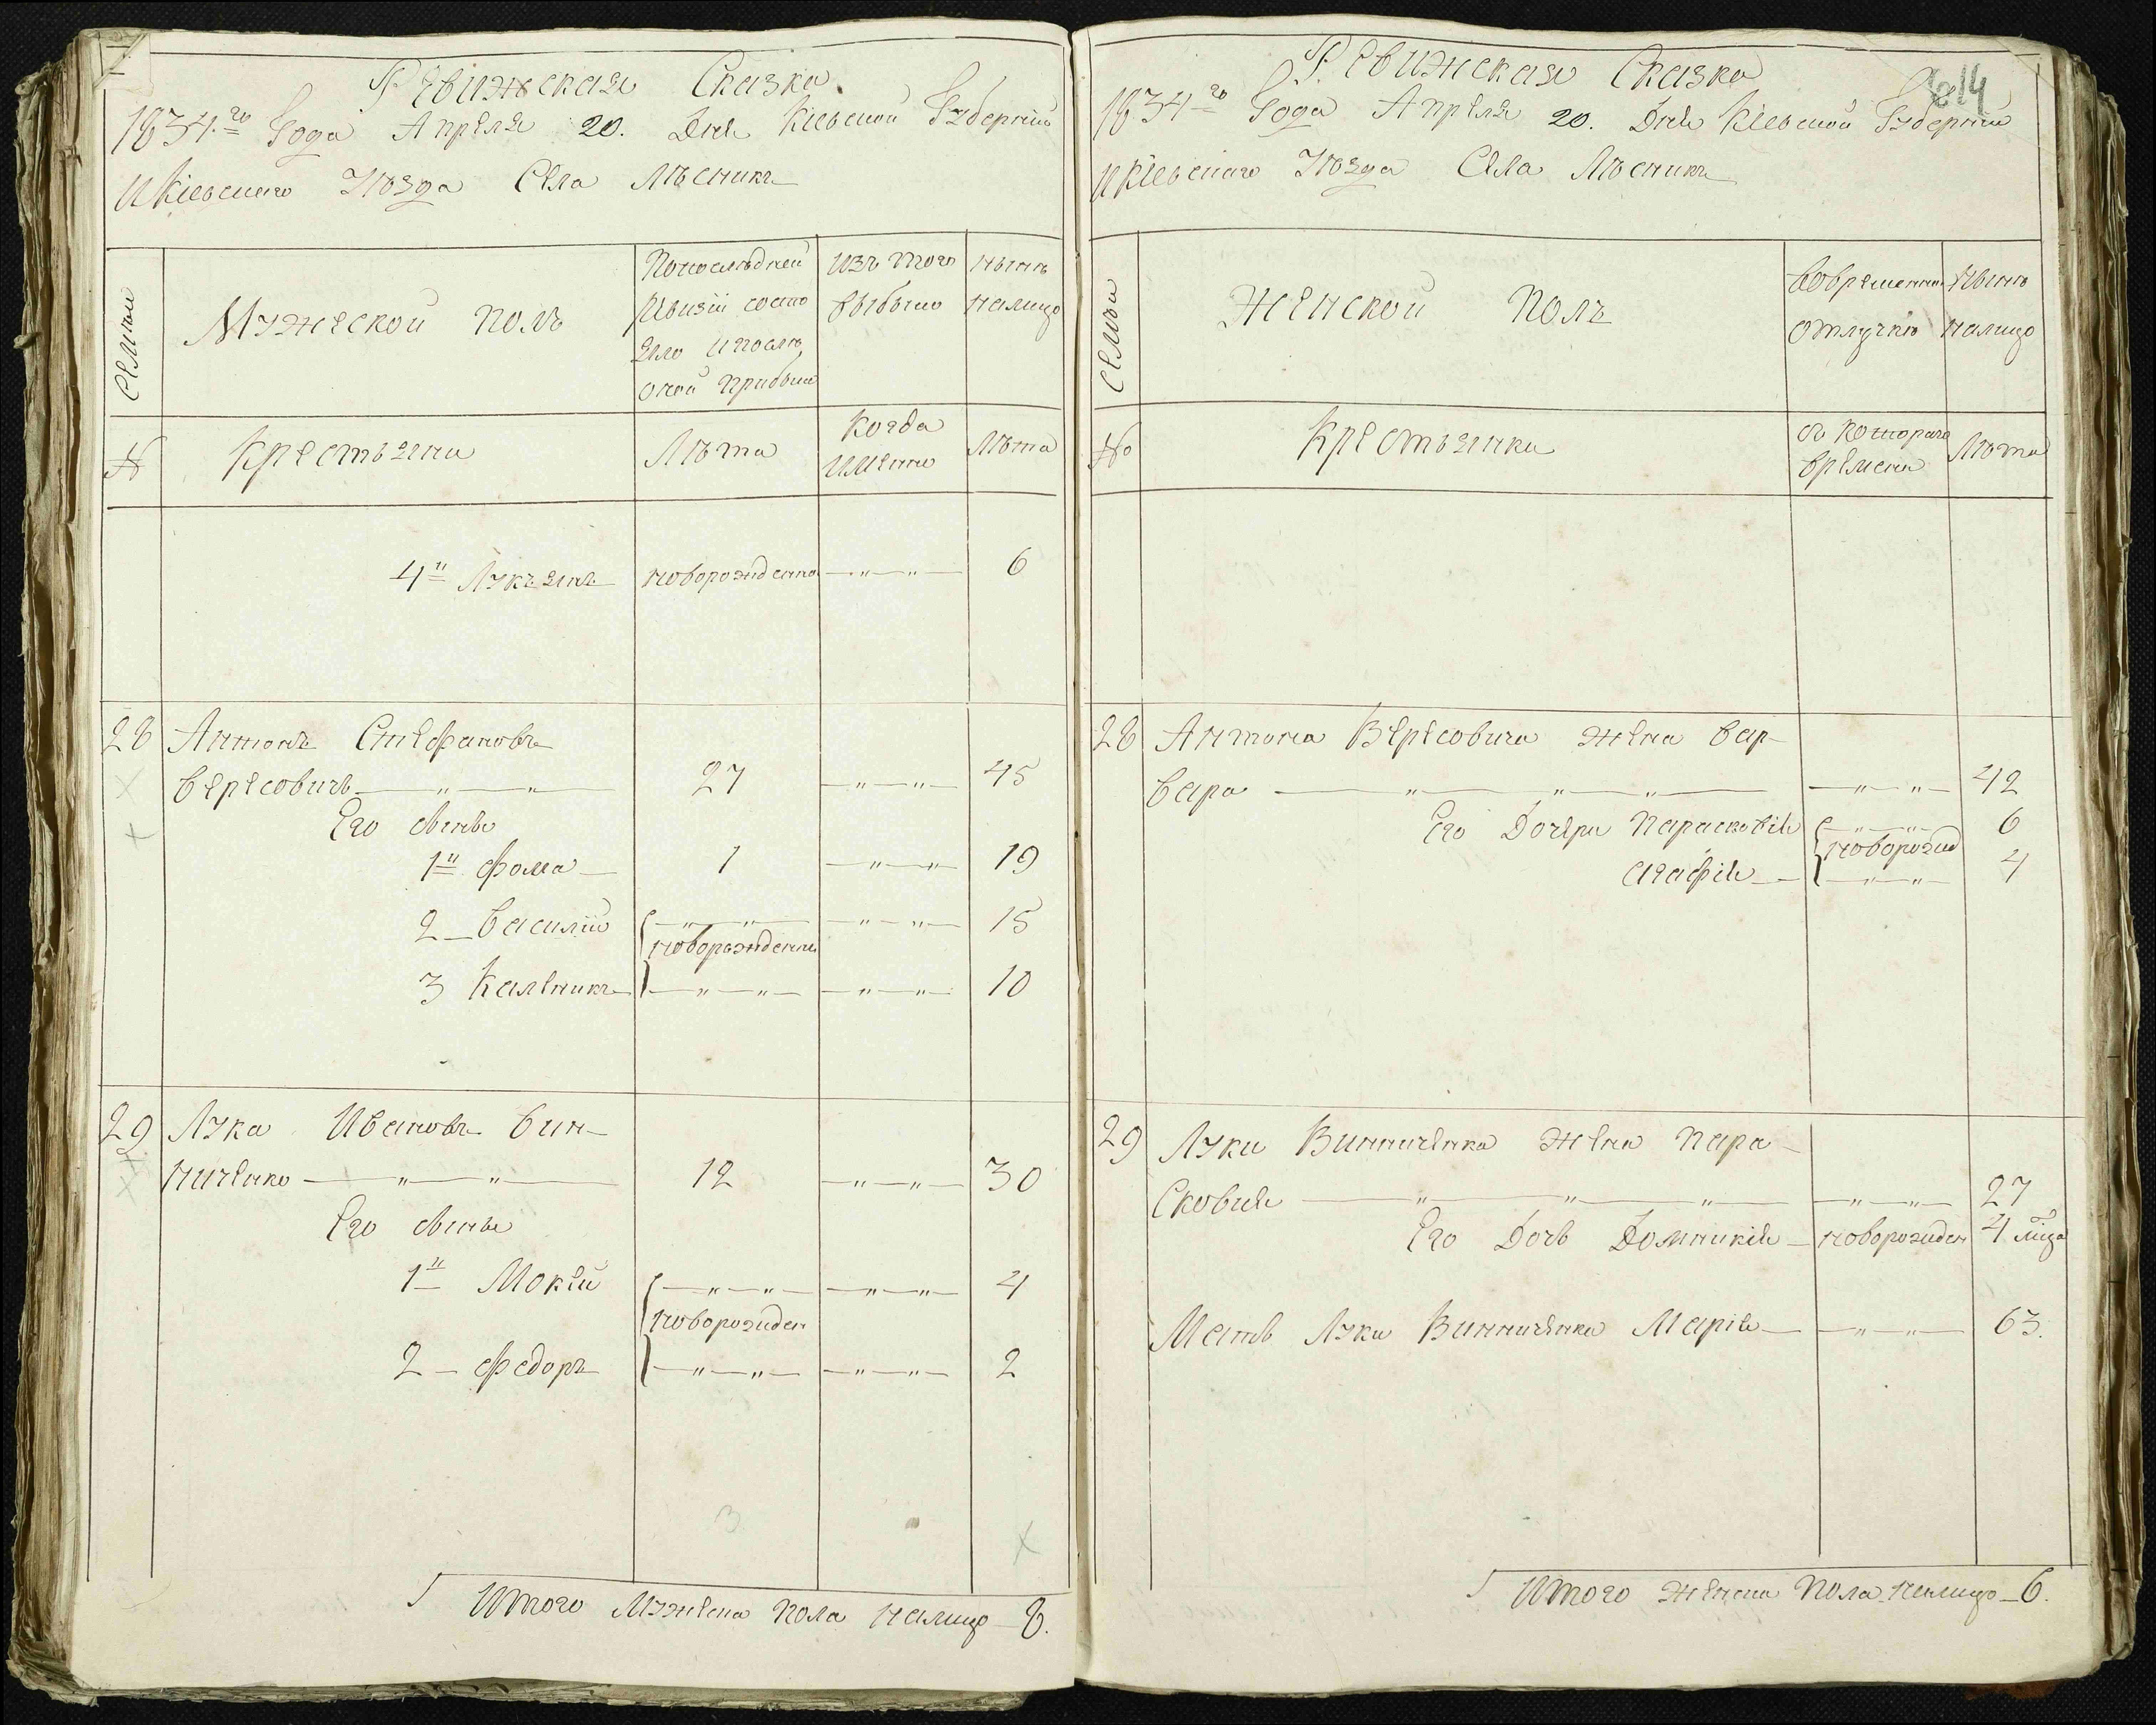 Ревижская Сказка.
1834го Года Апреля 20. Дня Кіевской Губерніи
и Кіевскаго Уѣзда Села Лѣсникъ
Семьи
Мужеской полъ
По последней
ревизіи состо
яло и послѣ
оной прибыло
Изъ того
выбыло
Нынѣ
налицо
№
Крестьяни
Лѣта
Когда
имянно
Лѣта
4й Лукъянъ новорожденно — " — " — 6
28 Антонъ Стефановъ
Вересовичъ — " — " — 27 — " — " — 45
Его сыны
1й Фома — 1 — " — " — 19
2 — Василій — " — " — — " — " — 15
новорожденны
3 Каленикъ — " — " — — " — " — 10
29 Лука Ивановъ Вин-
ниченко — " — " — 12 — " — " — 30
Его сыны
1й Мокей — " — " — — " — " — 4
новорожден
2 — Федоръ — " — " — — " — " — 2
3
Итого Мужеска пола налицо — 8.
Ревижская Сказка
614
1834го Года Апреля 20. Дня Кіевской Губерніи
и Кіевскаго Уѣзда Села Лѣсникъ
Семьи
Женской полъ
Во временной
отлучкѣ
Нынѣ
налицо
№
Крестьянки
Съ котораго
времени
Лѣта
28 Антона Вересовича жена Вар-
вара — " — " — " — — " — " — 42
Его Дочери Парасковія — " — " — 6
новорожд
Агафія — — " — " — 4
29 Луки Винниченка жена Пара-
сковія — " — " — " — — " — " — 27
Его Дочь Домникія — новорожден 4
Мать Луки Винниченка Марія — — " — " — 63.
Итого женска пола налицо — 6.